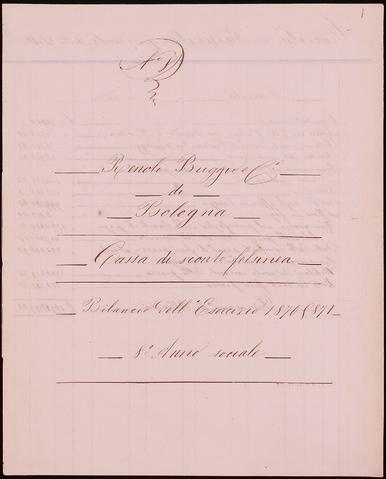 1
N° 1
Renoli Buggio e C.ⁱ
di
Bologna
Cassa di sconto
Bilancio dell'Esercizio 1870/1871
8° Anno sociale